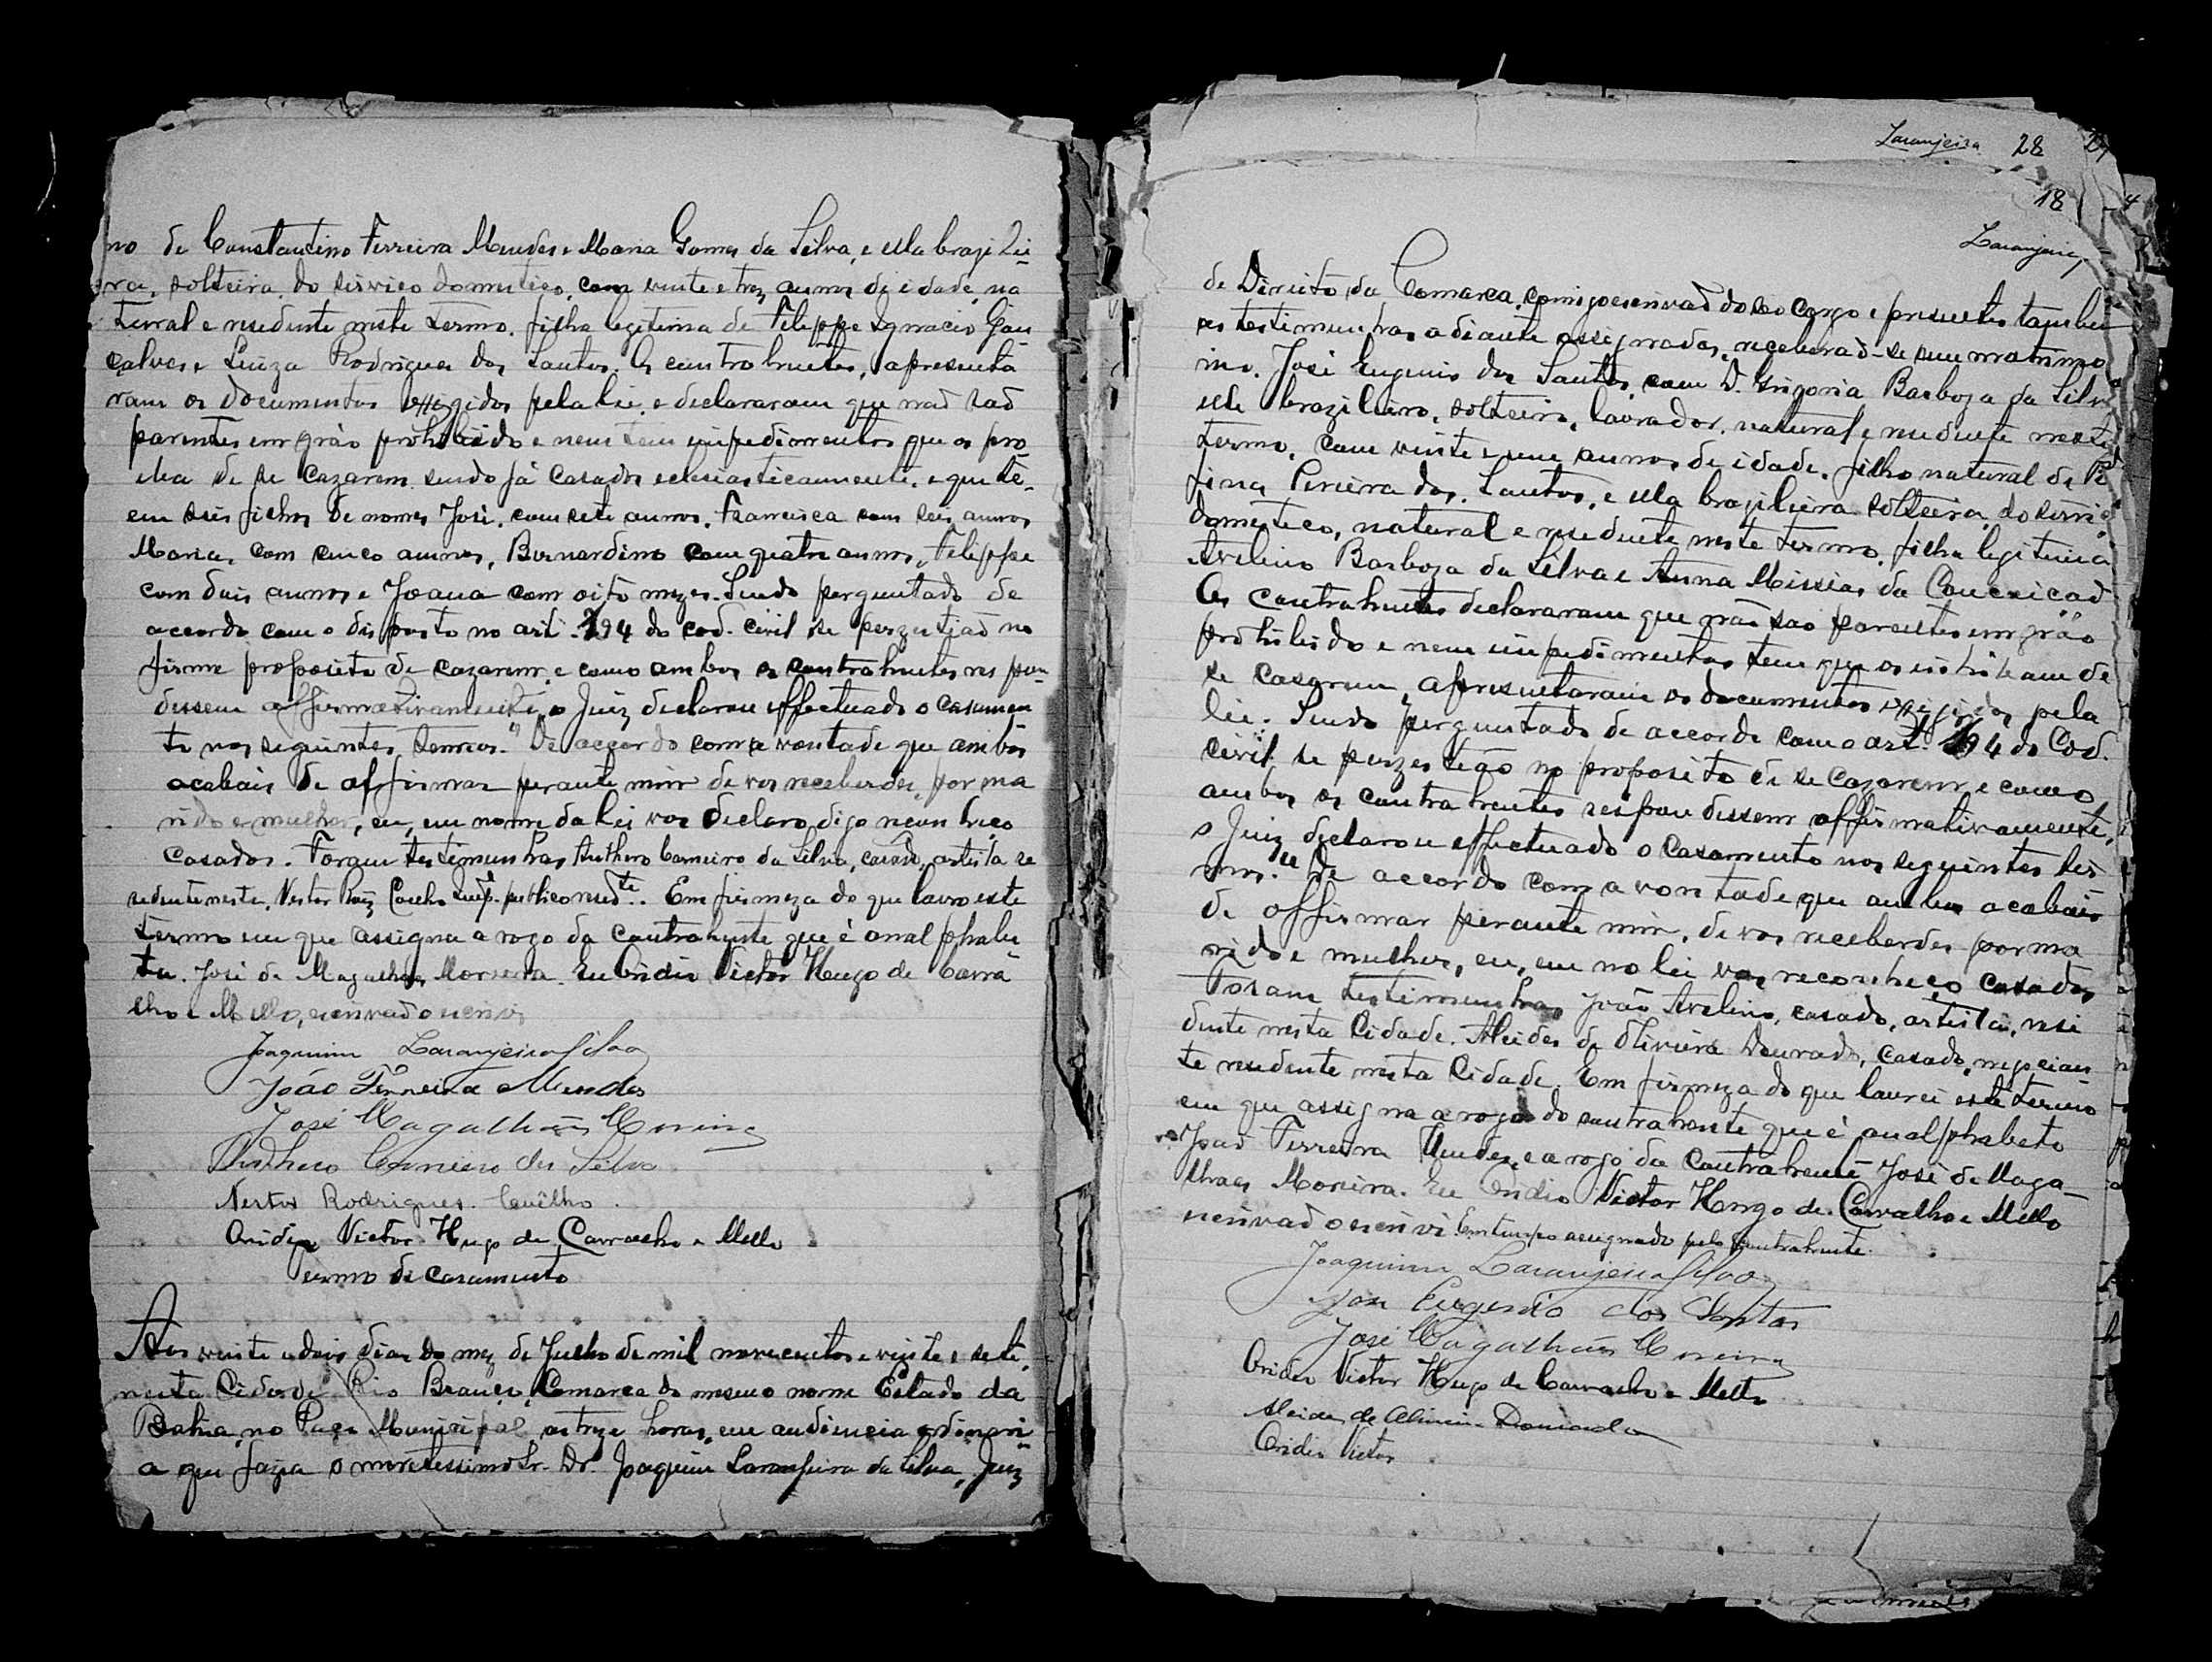 no de Constantino Ferreira Mendes e Maria Gomes da Silva, e ella brazilei-
ra, solteira, do serviço domestico, com vinte e trez annos de idade, na
tural e residente neste termo, filha legitima de Felippe Ignacio Gon
çalves e Luiza Rodrigues dos Santos. Os contrahentes, apresenta
ram os documentos exzigidos pela lei, e declararam que naõ saõ
parentes em gráo prohibido e nem tem impedimentos que os pro
iba de se cazarem sendo já casados eclesiasticamente, e que te-
em seis filhos de nomes José, com sete annos, Francisca com seis annos,
Maria, com cinco annos, Bernardino com quatro annos, Felippe
com dois annos e Joana com oito mezes. Sendo perguntado de
accordo com o disposto no art. 194 do cod. civil se perzistiaõ no
firme proposito de cazarem, e como ambos os contrahentes respon-
dessem affirmativamente, o Juiz declarou effectuado o casamen
to nos seguintes termos: "De accordo com a vontade que ambos
acabais de affirmar perante mim de vos receberdes, por ma
rido e mulher, eu, em nome da lei vos declaro digo reconheço
casados. Foram testimunhas Anthero Carneiro da Silva, casado, artista re
sidente neste, Nestor Roiz Coelho Emp. publico resid.te. Em firmeza do que lavro este
termo em que assigna a rogo da contrahente que é analphabe
ta. José de Magalhães Moreira. Eu Ovidio Victor Hugo de Carva
lho e Mello, escrivaõ o escrevi
Joaquim Laranjeira Silva
João Ferreira Mendes
José Magalhães Moreira
Anthero Carneiro da Silva
Nestor Rodrigues Coêlho.
Ovidio Victor Hugo de Carvalho e Mello
Termo de casamento
Aos vinte e dois dias do mez de Julho de mil novecentos e vinte e sete,
nesta Cidade Rio Branco, Comarca do mesmo nome Estado da
Bahia, no Paço Municipal as treze horas, em audiencia ordinari-
a que fazia o meretissimo Sr. Dr. Joaquim Laranjeira da Silva, Juiz
Laranjeira 28
18
Laranjeira
de Direito da Comarca, comigo escrivaõ do seo cargo e presentes tambem
as testimunhas adiante assignadas, receberaõ-se em matrimo
nio. José Eugenio dos Santos, com D. Gregoria Barboza da Silva
elle brazileiro, solteiro, lavrador, natural e residente neste
termo, com vinte e um annos de idade, filho natural de
Pereira dos Santos, e ella brazileira solteira, do serviço
domestico, natural e residente neste termo, filha legitima
Avelino Barboza da Silva e Anna Missias da Conceiçaõ
Os contrahentes declararam que não sao parentes em gráo
prohibido e nem impedimentos tem que os inhibam de
se casarem, apresentaram os documentos exzigidos pela
lei. Sendo perguntado de accordo com o art. 194 do Cod.
civil se perzistião no proposito de se cazarem e como
ambos os contrahentes respondessem affirmativamente,
o Juiz declarou effectuado o casamento nos seguintes ter
mos: "De accordo com a vontade que ambos acabais
de affirmar perante mim, de vos receberdes por ma
rido e mulher, eu, em no lei vos reconheço casados
Foram testimunhas João Avelino, casado, artista, resi
dente nesta Cidade. Alcides de Oliveira Dourado, casado, negocian
te residente nesta Cidade. Em firmeza do que lavrei este termo
em que assigna a rogo do contrahente que é analphabeto
Joaõ Ferreira Mendes, e a rogo da contrahente José de Maga-
lhaes Moreira. Eu Ovidio Victor Hugo de Carvalho e Mello
escrivaõ o escrevi. Em tempo assignado pelo Contrahente.
Joaquim Laranjeira Silva
José Eugenio dos Santos
José Magalhães Moreira
Ovidio Victor Hugo de Carvalho e Mello
Alcides de Oliveira Dourado
Ovidio Victor